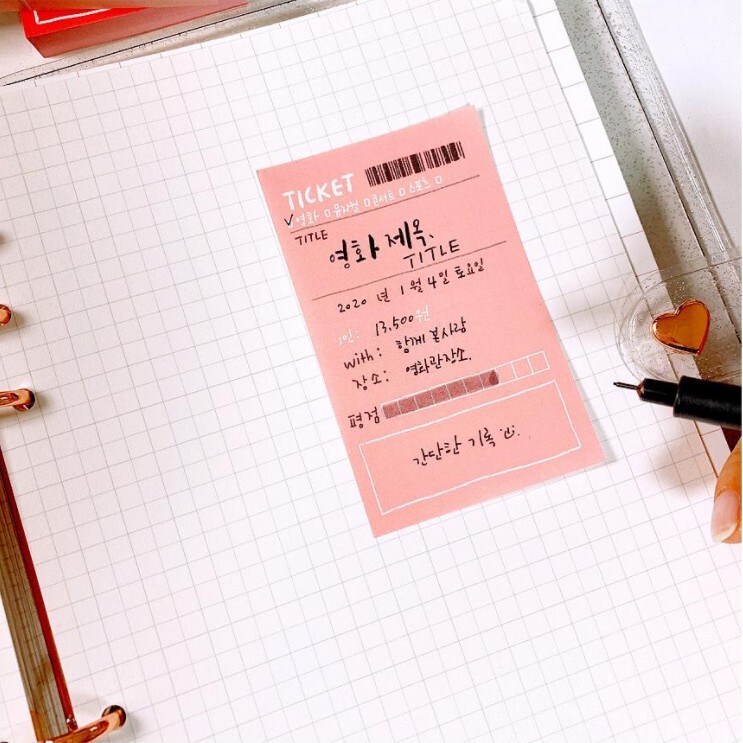 TICKET
✓영화 □뮤지컬 □콘서트 □스포츠 □
TITLE
영화 제목
TITLE
2020 년 1월 4일 토요일
1인: 13,500원
with: 함께 본사람
장소: 영화관장소.
평점
간단한 기록